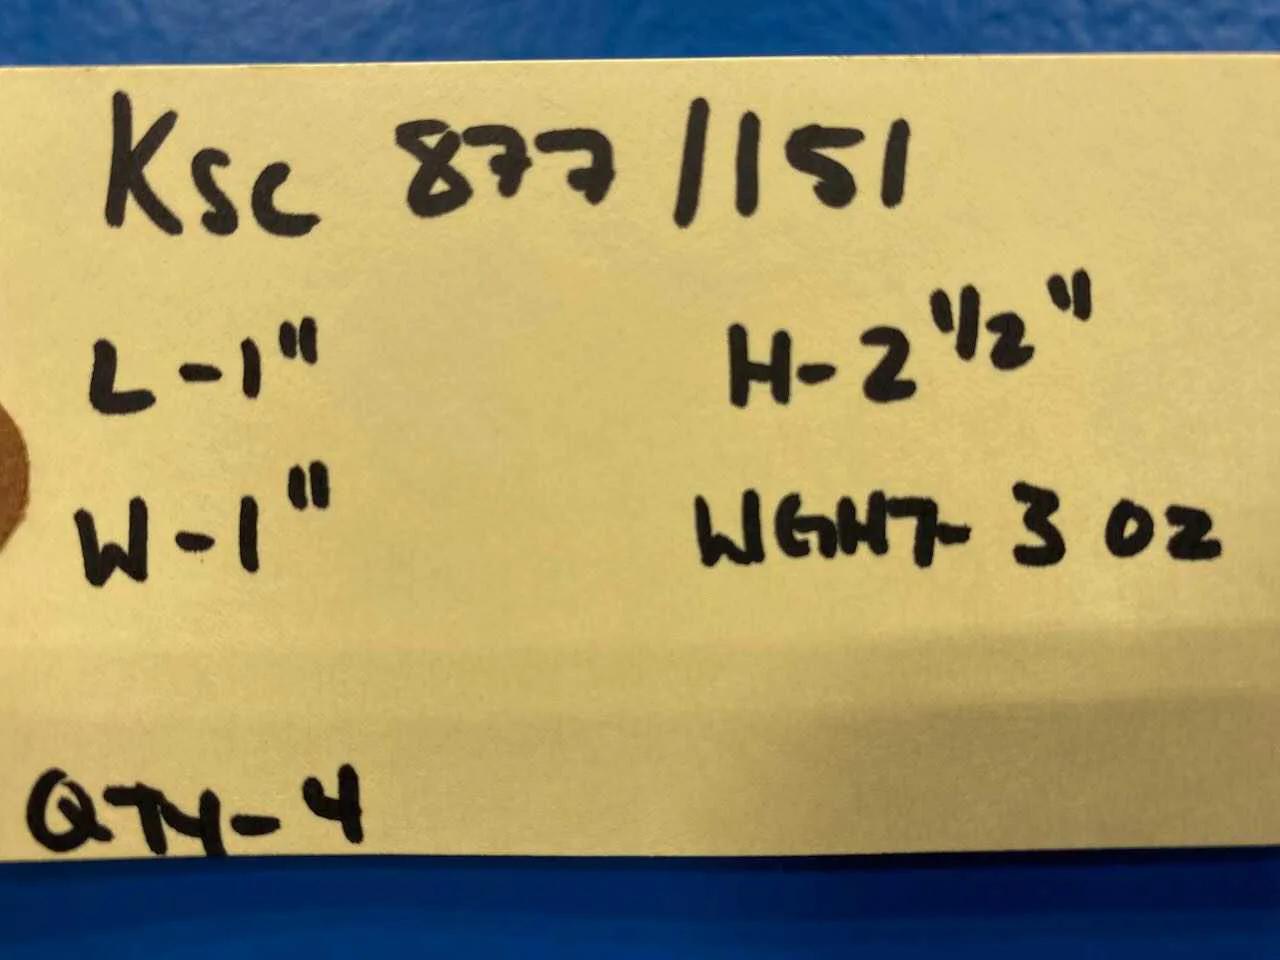 Ksc 877/151
L-1" H-2 1/2"
W-1" WGHT- 3 oz
QTY-4